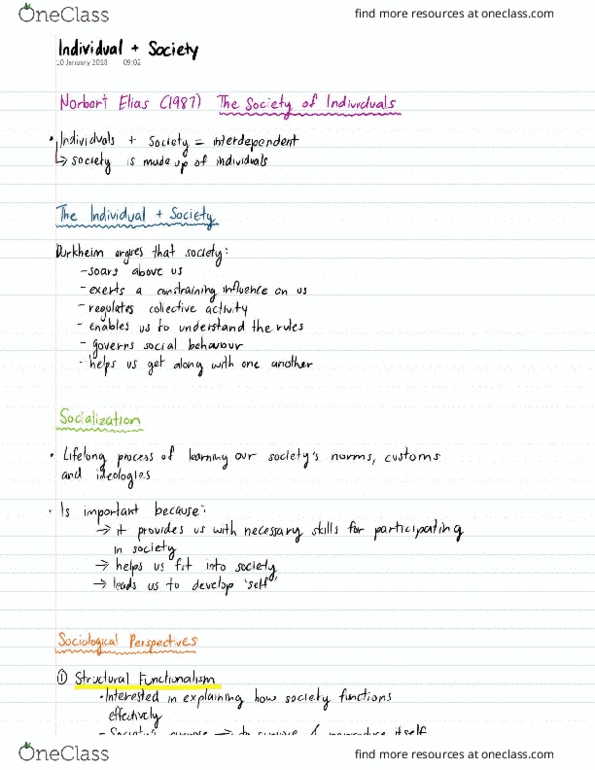 OneClass
find more resources at oneclass.com
Individual + Society
10 January 2018 09:02
Norbert Elias (1987) The Society of Individuals
• Individuals + Society = interdependent
↳ society is made up of individuals
The Individual + Society
Durkheim argues that society:
- soars above us
- exerts a constraining influence on us
- regulates collective activity
- enables us to understand the rules
- governs social behaviour
- helps us get along with one another
Socialization
• Lifelong process of learning our society's norms, customs
and ideologies
• Is important because:
→ it provides us with necessary skills for participating
in society
→ helps us fit into society
→ leads us to develop 'self'
Sociological Perspectives
① Structural Functionalism
• Interested in explaining how society functions
effectively
OneClass
find more resources at oneclass.com